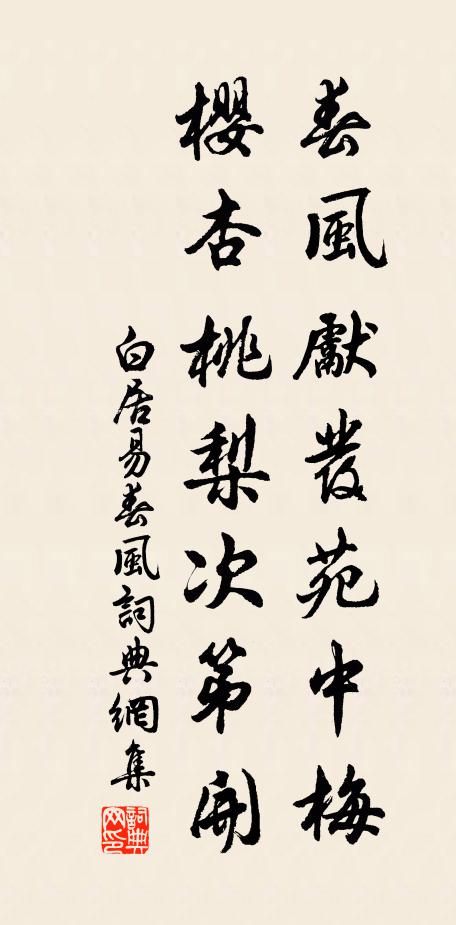 春風獻發苑中梅
櫻杏桃梨次第開
白居易春風詞典網集
詞典
网印